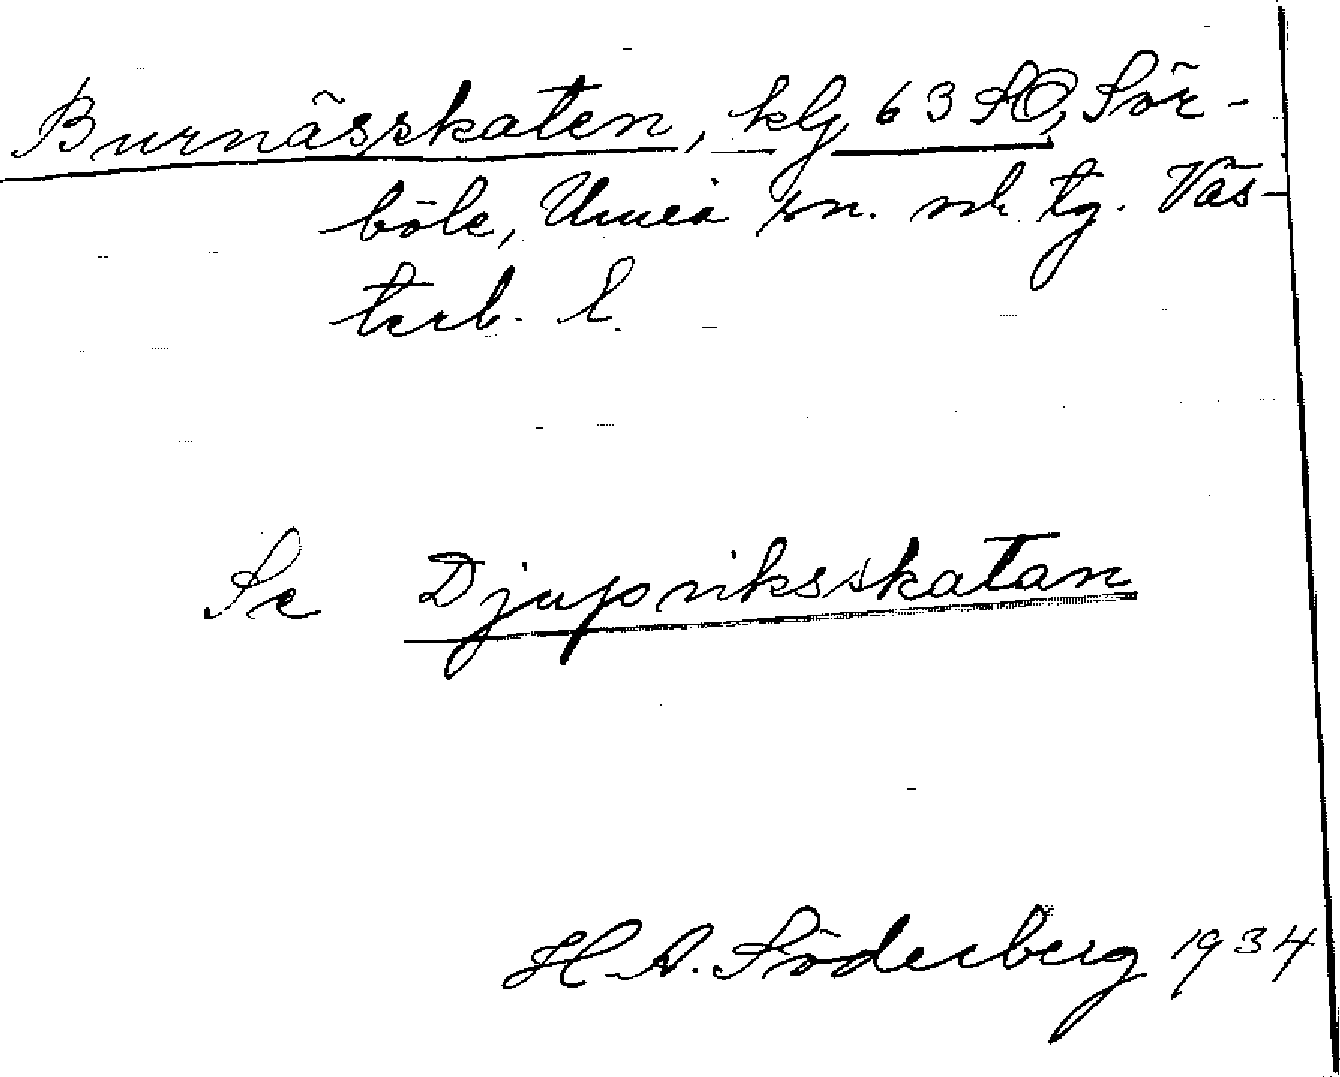 Burnässkaten, klj 63 SO, Sör-
böle, Umeå sn. o. lk. tg. Väs-
terb. l.
Se Djupviksskatan
H. A. Söderberg 1934